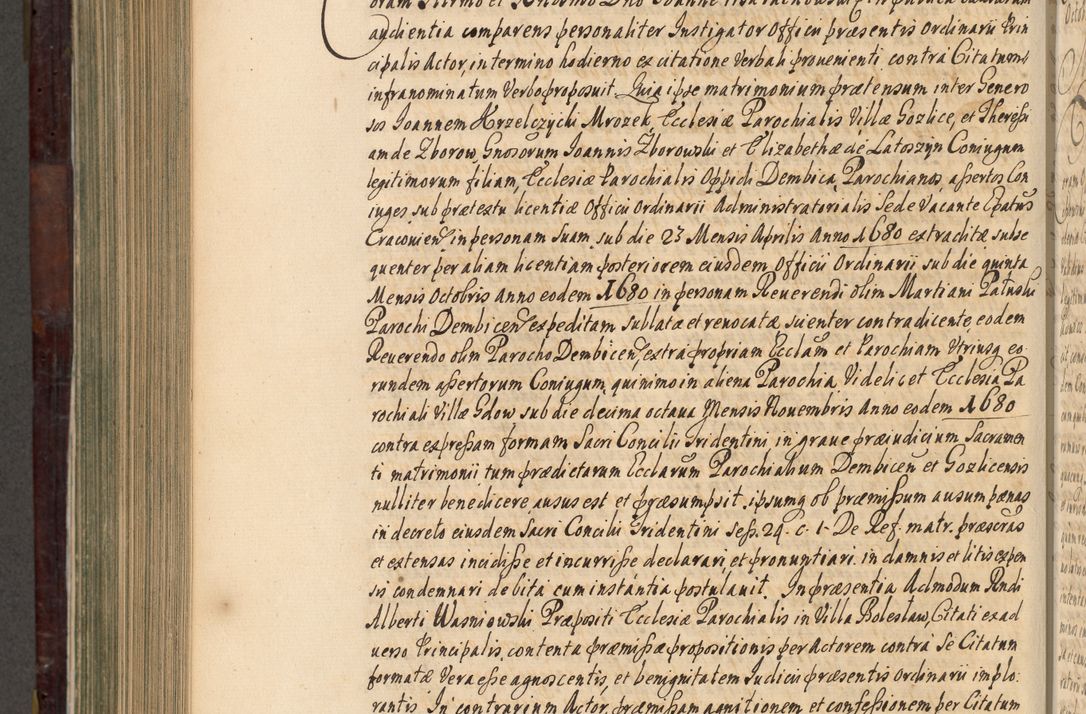 audientia comparens personaliter Instigator Officii præsentis Ordinarii Prin
cipalis Actor, in termino hodierno ex citatione Verbali provenienti contra Citatum
infranominatum Verbo proposuit. Quia ipse matrimonium prætensum inter Genero
sos Joannem Krzelczycki Mrozek, Ecclesiæ Parochialis Villæ Gozlice, et Theresi
am de Zborow, Gnosorum Joannis Zborowski et Elizabethæ de Latoszyn Coniugum
legitimorum filiam, Ecclesiæ Parochialis Oppidi Dembica, Parochianos, assertos Con
iuges sub prætextu licentiæ Officii Ordinarii Administratorialis Sede Vacante Epatus
Cracovien in personam suam, sub die 23 Mensis Aprilis Anno 1680 extraditæ, subse
quenter per aliam licentiam posteriorem eiusdem Officii Ordinarii sub die quinta
Mensis Octobris Anno eodem 1680 in personam Reverendi olim Martiani Patuski
Parochi Dembicen expeditam sublatæ et revocatæ, scienter contradicente eodem
Reverendo olim Parocho Dembicen, extra propriam Ecclam et Parochiam Utriusq eo
rundem assertorum Coniugum, quinimo in aliena Parochia Videlicet Ecclesia Pa
rochiali Villæ Gdow sub die decima octava Mensis Novembris Anno eodem 1680
contra expressam formam Sacri Concilii Tridentini in grave præiudicium Sacramen
ti matrimonii tum prædictarum Ecclarum Parochialium Dembicen et Gozlicensis
nulliter benedicere ausus est et præsumpsit, ipsumq ob præmissum ausum pænas
in decreto eiusdem Sacri Concilii Tridentini Sess. 24. c. 1. De Ref. matr. præscras
et extensas incidisse et incurrisse declarari, et pronuntiari, in damnis et litis expen
sis condemnari debita cum instantia postulavit. In præsentia Admodum Rndi
Alberti Wasniowski Præpositi Ecclesiæ Parochialis in Villa Boleslaw, Citati ex ad
verso Principalis, contenta præmissæ propositionis per Actorem contra Se Citatum
formatæ Vera esse agnoscentis, et benignitatem Iudicii præsentis Ordinarii implo
rantis. In contrarium Actor, præmissam agnitionem et confessionem per Citatum